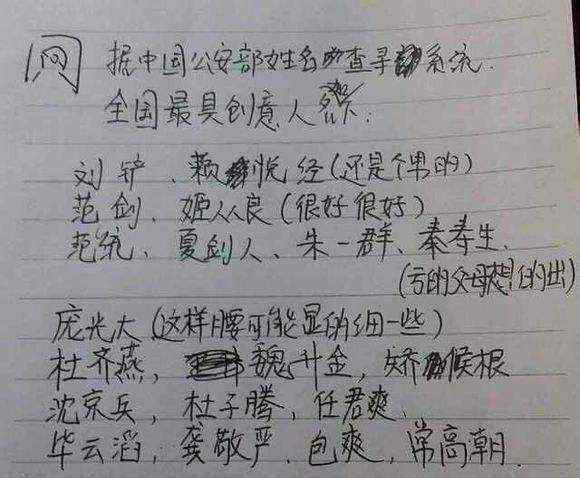 网 据中国公安部姓名查寻系统.
全国最具创意人名
刘铲、赖悦经(还是个男的)
范剑、姬从良(很好很好)
范统、夏剑人、朱一群、秦寿生、
(亏的父母想的出)
庞光大(这样腰可能显的细一些)
杜齐燕, 魏升金, 矫候根
沈京兵, 杜子腾, 任君爽、
毕云滔, 龚敬严、包爽, 常高朝